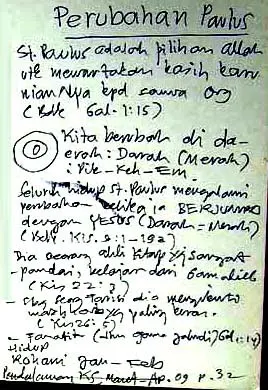 Perubahan Paulus
St. Paulus adalah pilihan Allah
utk mewartakan kasih karu
niaNnya kpd semua org
(Bdk Gal. 1:15)
Kita berubah di da-
erah: Darah (Merah)
seluruh hidup St. Paulus mengalami
perubahan ketika ia BERJUMPA
dengan YESUS (Darah = Merah)
(Bdk. Kis. 9:1-19a)
Dia seorang ahli kitab yg sangat
pandai, belajar dari Gamaliel
(Kis 22:3)
- Sbg seorg Farisi dia menganut
mazhab yg paling keras.
(Kis 26:5)
- Fanatik (dlm agama yahudi) Gal. 1:14)
Hidup
Rohani Jan - Feb
Pendalaman KS Maret-Ap. 09 p. 32